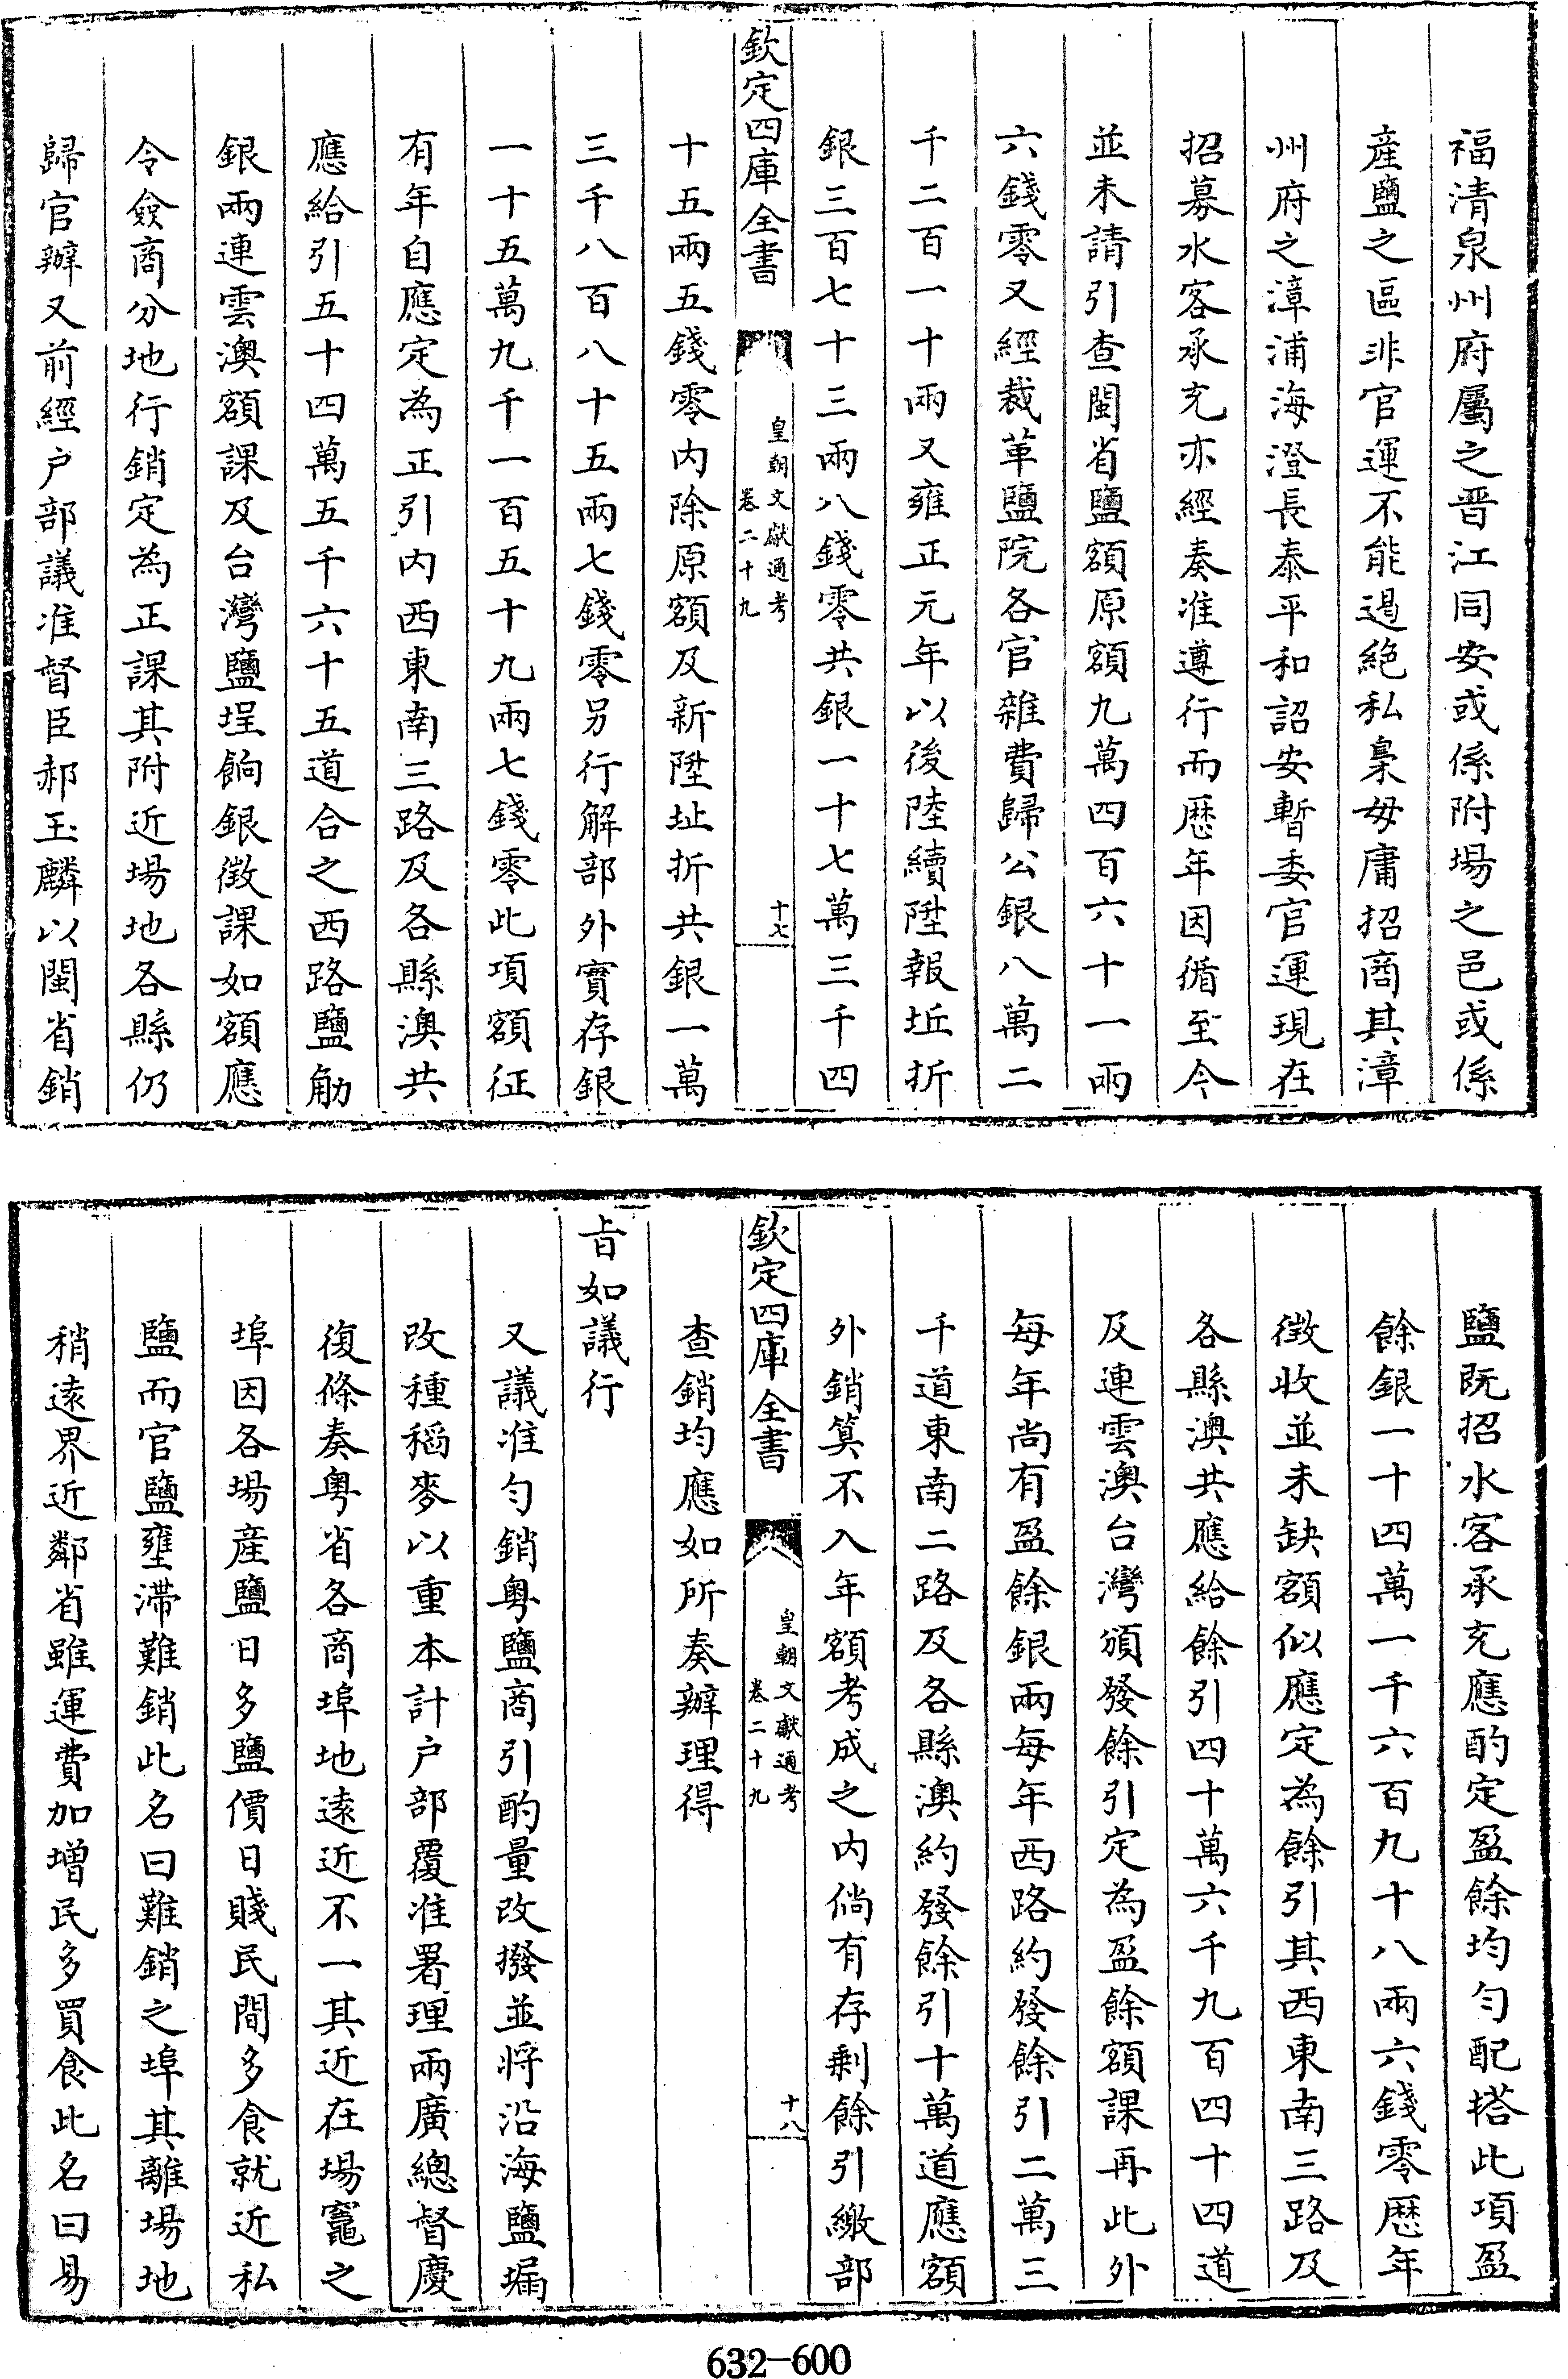 福清泉州府屬之晋江同安或係附場之邑或係
産鹽之區非官運不能遏絶私梟毋庸招商其漳
州府之漳浦海澄長泰平和詔安暫委官運現在
招募水客承充亦經奏准遵行而厯年因循至今
並未請引查閩省鹽額原額九萬四百六十一兩
六錢零又經裁革鹽院各官雜費歸公銀八萬二
千二百一十兩又雍正元年以後陸續陞報坵折
銀三百七十三兩八錢零共銀一十七萬三千四
欽定四庫全書
皇朝文獻通考
卷二十九
十七
十五兩五錢零内除原額及新陞坵折共銀一萬
三千八百八十五兩七錢零另行解部外實存銀
一十五萬九千一百五十九兩七錢零此項額征
有年自應定為正引内西東南三路及各縣澳共
應給引五十四萬五千六十五道合之西路鹽觔
銀兩連雲澳額課及台灣鹽埕餉銀徴課如額應
令僉商分地行銷定為正課其附近場地各縣仍
歸官辦又前經户部議准督臣郝玉麟以閩省銷
鹽既招水客承充應酌定盈餘均匀配搭此項盈
餘銀一十四萬一千六百九十八兩六錢零厯年
徴收並未缺額似應定為餘引其西東南三路及
各縣澳共應給餘引四十萬六千九百四十四道
及連雲澳台灣頒發餘引定為盈餘額課再此外
每年尚有盈餘銀兩每年西路約發餘引二萬三
千道東南二路及各縣澳約發餘引十萬道應額
外銷算不入年額考成之内倘有存剩餘引繳部
欽定四庫全書
皇朝文獻通考
卷二十九
十八
查銷均應如所奏辦理得
旨如議行
又議准匀銷粤鹽商引酌量改撥並將沿海鹽漏
改種稻麥以重本計户部覆准署理兩廣總督慶
復條奏粤省各商埠地遠近不一其近在場竈之
埠因各場産鹽日多鹽價日賤民間多食就近私
鹽而官鹽壅滯難銷此名曰難銷之埠其離場地
稍遠界近鄰省雖運費加增民多買食此名曰易
632-600